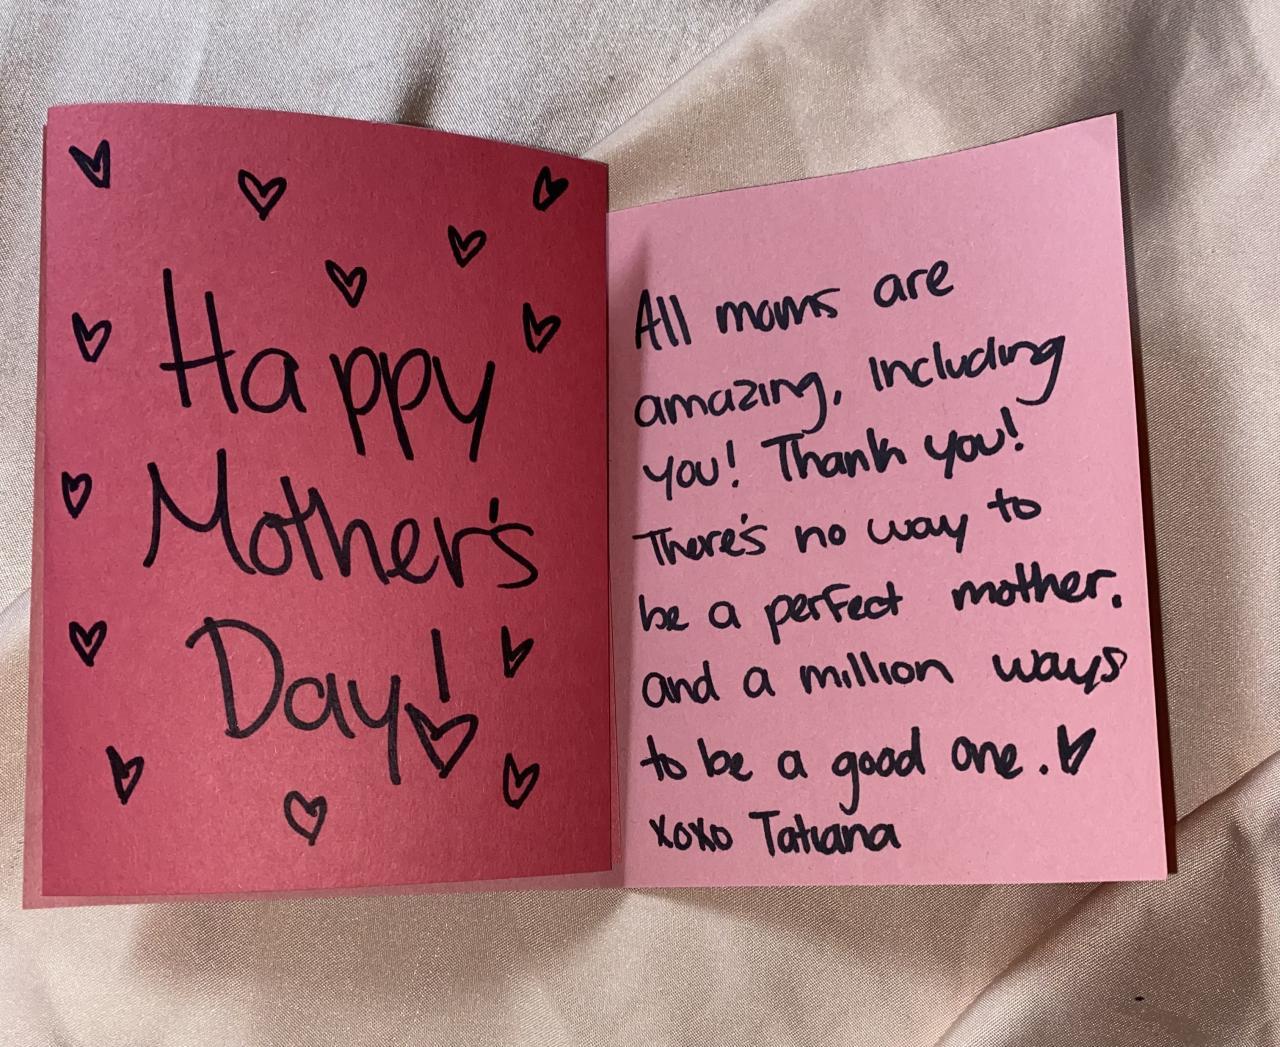 Happy
Mother's
Day!
All moms are
amazing, including
you! Thank you!
There's no way to
be a perfect mother.
and a million ways
to be a good one.
xoxo Tatiana